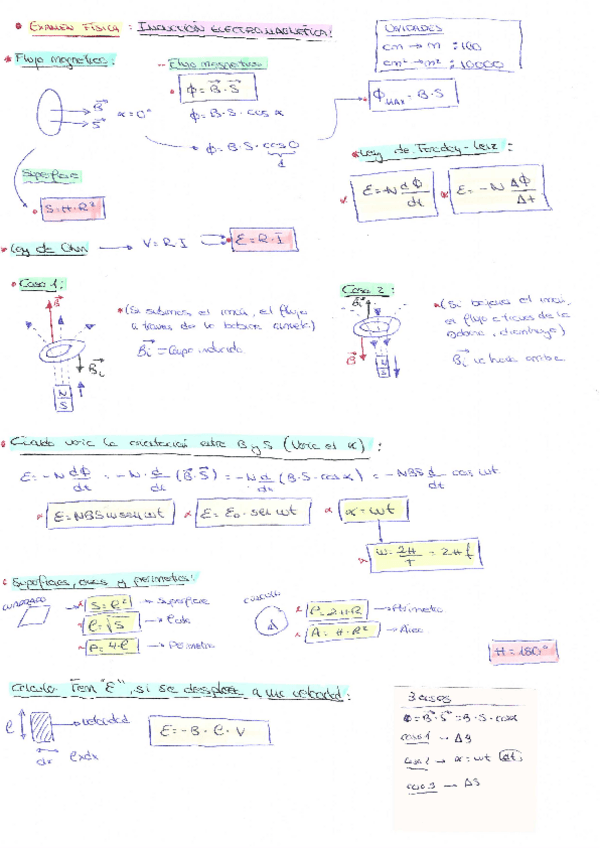 EXAMEN FÍSICA : INDUCCIÓN ELECTROMAGNÉTICA:
UNIDADES
cm → m : 100
cm² → m² : 10000
Flujo magnético:
Flujo magnético
Φ = B · S
B
S
α = 0°
Φ = B · S · cos α
Φ = B · S · cos 0
1
Φ MAX = B · S
Ley de Faraday-Lenz :
Superficie
S = π · R²
ε = -N dΦ/dt
ε = -N ΔΦ/Δt
Ley de Ohm → V = R · I
ε = R · I
Caso 1:
B
(Si subimos el imán, el flujo
a través de la bobina aumenta)
Bi = Campo inducido
Bi
N
S
Caso 2:
Bi
(Si bajamos el imán,
el flujo a través de la
bobina, disminuye)
Bi va hacia arriba
B
N
S
Cuando varía la orientación entre B y S (Varía el α) :
ε = -N dΦ/dt = -N · d/dt (B · S) = -N d/dt (B · S · cos α) = -NBS d/dt cos wt
ε = NBS w sen wt
ε = ε₀ · sen wt
α = wt
w = 2π/T = 2π f
Superficies, áreas y perímetros:
CUADRADO
S = l² → Superficie
l = √S → Lado
P = 4 · l → Perímetro
CÍRCULO
P = 2πR → Perímetro
A = π · R² → Área
π = 180°
Calcular Fem "ε", si se desplaza a una velocidad:
l
velocidad
dx
l·dx
ε = -B · l · V
3 casos
Φ = B · S = B · S · cos α
caso 1 → ΔB
caso 2 → α = wt
caso 3 → ΔS